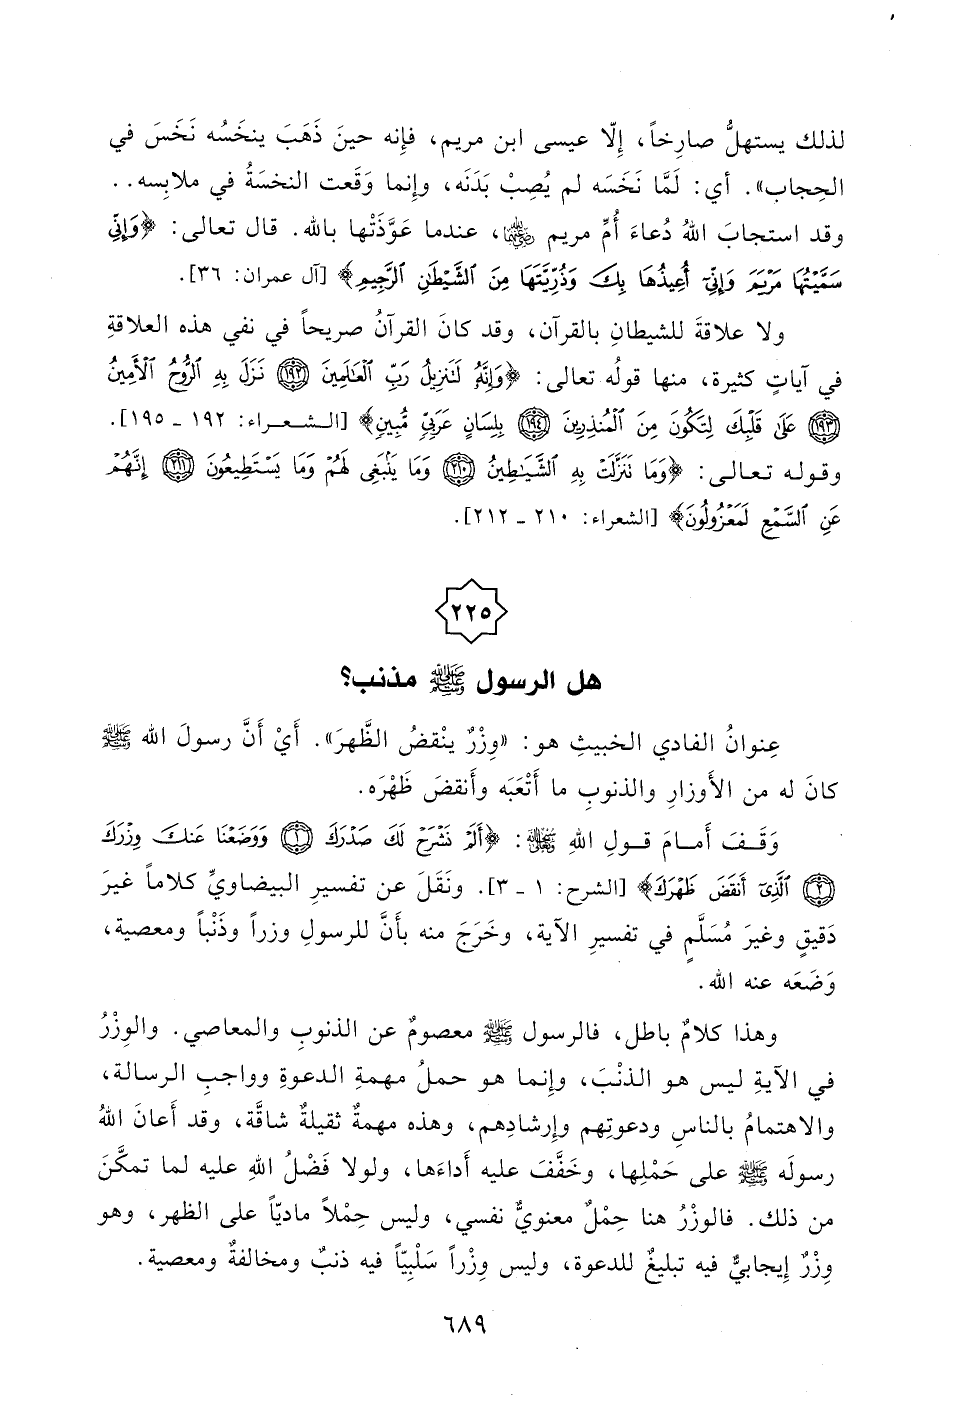 لذلك يستهلُّ صارِخاً، إِلّا عيسى ابن مريم، فإنه حينَ ذَهَبَ ينخَسُه نَخَسَ في
الحِجاب». أي: لَمَّا نَخَسَه لم يُصِبْ بَدَنَه، وإنما وَقَعت النخسَةُ في ملابِسه..
وقد استجابَ اللهُ دُعاءَ أُمِّ مريم ، عندما عَوَّذَتْها بالله. قال تعالى: ﴿وَإِنِّي
سَمَّيْتُهَا مَرْيَمَ وَإِنِّي أُعِيذُهَا بِكَ وَذُرِّيَّتَهَا مِنَ الشَّيْطَانِ الرَّجِيمِ﴾ [آل عمران: ٣٦].
ولا علاقةَ للشيطانِ بالقرآن، وقد كانَ القرآنُ صريحاً في نفي هذه العلاقةِ
في آياتٍ كثيرة، منها قولُه تعالى: ﴿وَإِنَّهُ لَتَنزِيلُ رَبِّ الْعَالَمِينَ (١٩٢) نَزَلَ بِهِ الرُّوحُ الْأَمِينُ
(١٩٣) عَلَى قَلْبِكَ لِتَكُونَ مِنَ الْمُنذِرِينَ (١٩٤) بِلِسَانٍ عَرَبِيٍّ مُّبِينٍ﴾ [الشعراء: ١٩٢ ـ ١٩٥].
وقوله تعالى: ﴿وَمَا تَنَزَّلَتْ بِهِ الشَّيَاطِينُ (٢١٠) وَمَا يَنۢبَغِي لَهُمْ وَمَا يَسْتَطِيعُونَ (٢١١) إِنَّهُمْ
عَنِ السَّمْعِ لَمَعْزُولُونَ﴾ [الشعراء: ٢١٠ ـ ٢١٢].
٢٢٥
هل الرسول ﷺ مذنب؟
عِنوانُ الفادي الخبيثِ هو: «وِزْرٌ ينْقضُ الظَّهرَ». أَيْ أَنَّ رسولَ الله ﷺ
كانَ له من الأَوزارِ والذنوبِ ما أَتْعَبَه وأَنقضَ ظَهْرَه.
وَقَفَ أَمامَ قولِ اللهِ : ﴿أَلَمْ نَشْرَحْ لَكَ صَدْرَكَ (١) وَوَضَعْنَا عَنكَ وِزْرَكَ
(٢) الَّذِي أَنقَضَ ظَهْرَكَ﴾ [الشرح: ١ ـ ٣]. ونَقَلَ عن تفسيرِ البيضاويِّ كلاماً غيرَ
دَقيقٍ وغيرَ مُسَلَّمٍ في تفسيرِ الآية، وخَرَجَ منه بأَنَّ للرسولِ وزراً وذَنْباً ومعصية،
وَضَعَه عنه الله.
وهذا كلامٌ باطل، فالرسول ﷺ معصومٌ عن الذنوبِ والمعاصي. والوِزْرُ
في الآيةِ ليس هو الذنْبَ، وإنما هو حملُ مهمةِ الدعوةِ وواجبِ الرسالة،
والاهتمامُ بالناسِ ودعوتِهم وإرشادِهم، وهذه مهمةٌ ثقيلةٌ شاقَّة، وقد أَعانَ اللهُ
رسولَه ﷺ على حَمْلِها، وخَفَّفَ عليه أَداءَها، ولولا فَضْلُ اللهِ عليه لما تمكَّنَ
من ذلك. فالوزْرُ هنا حِمْلٌ معنويٌّ نفسي، وليس حِمْلاً ماديّاً على الظهر، وهو
وِزْرٌ إِيجابيٌّ فيه تبليغٌ للدعوة، وليس وِزْراً سَلْبِيّاً فيه ذنبٌ ومخالفةٌ ومعصية.
٦٨٩